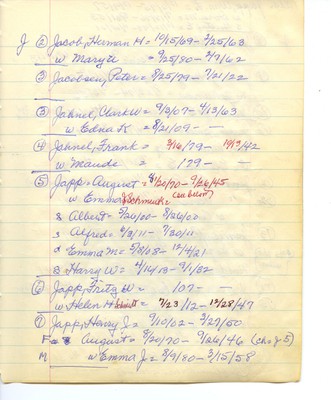 J ② Jacob, Haman H = 10/15/69 - 3/25/63
w Maryte = 9/25/80 - 3/9/62
② Jacobsen, Peter = 8/25/79 - 7/21/22
③ Jahnel, Clark W = 9/3/07 - 4/13/63
w Edna K = 8/21/09 - —
④ Jahnel, Frank = 3/16/79 - 10/19/42
w Maude = 179 - —
⑤ Japp, August = 8/20/70 - 9/26/45
w Emma Schmuck = (see below)
s Albert = 5/26/00 - 8/26/00
s Alfred = 6/2/11 - 7/30/11
d Emma M = 5/8/08 - 12/4/21
B Harry W = 4/14/13 - 9/1/32
⑥ Japp, Fritz W = 107 - —
w Helen H = 7/23/12 - 12/28/47
⑦ Japp, Henry J = 9/10/02 - 3/27/50
Fa August = 8/20/70 - 9/26/46 (ch of 5)
M w Emma J = 8/9/80 - 3/15/58